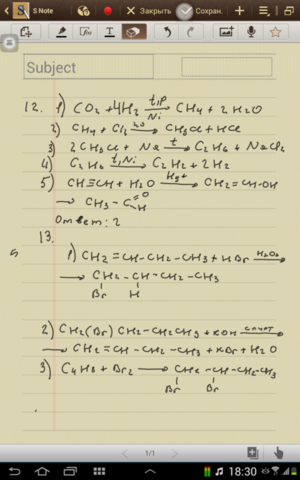 S Note
Закрыть
Сохран.
Subject
12. 1) CO2 + 4H2 t,P Ni → CH4 + 2H2O
2) CH4 + Cl2 hν → CH3Cl + HCl
3) 2CH3Cl + Na t → C2H6 + NaCl2
4) C2H6 t,Ni → C2H2 + 2H2
5) CH≡CH + H2O Hg+ → CH2=CH-OH
→ CH3-C=O H
Ответ: 2
13.
1) CH2=CH-CH2-CH3 + HBr H2O2 →
→ CH2-CH-CH2-CH3
Br H
2) CH2(Br)CH2-CH2CH3 + KOH спирт
→ CH2=CH-CH2-CH3 + KBr + H2O
3) C4H8 + Br2 → CH2-CH-CH2-CH3
Br Br
1/1
18:30